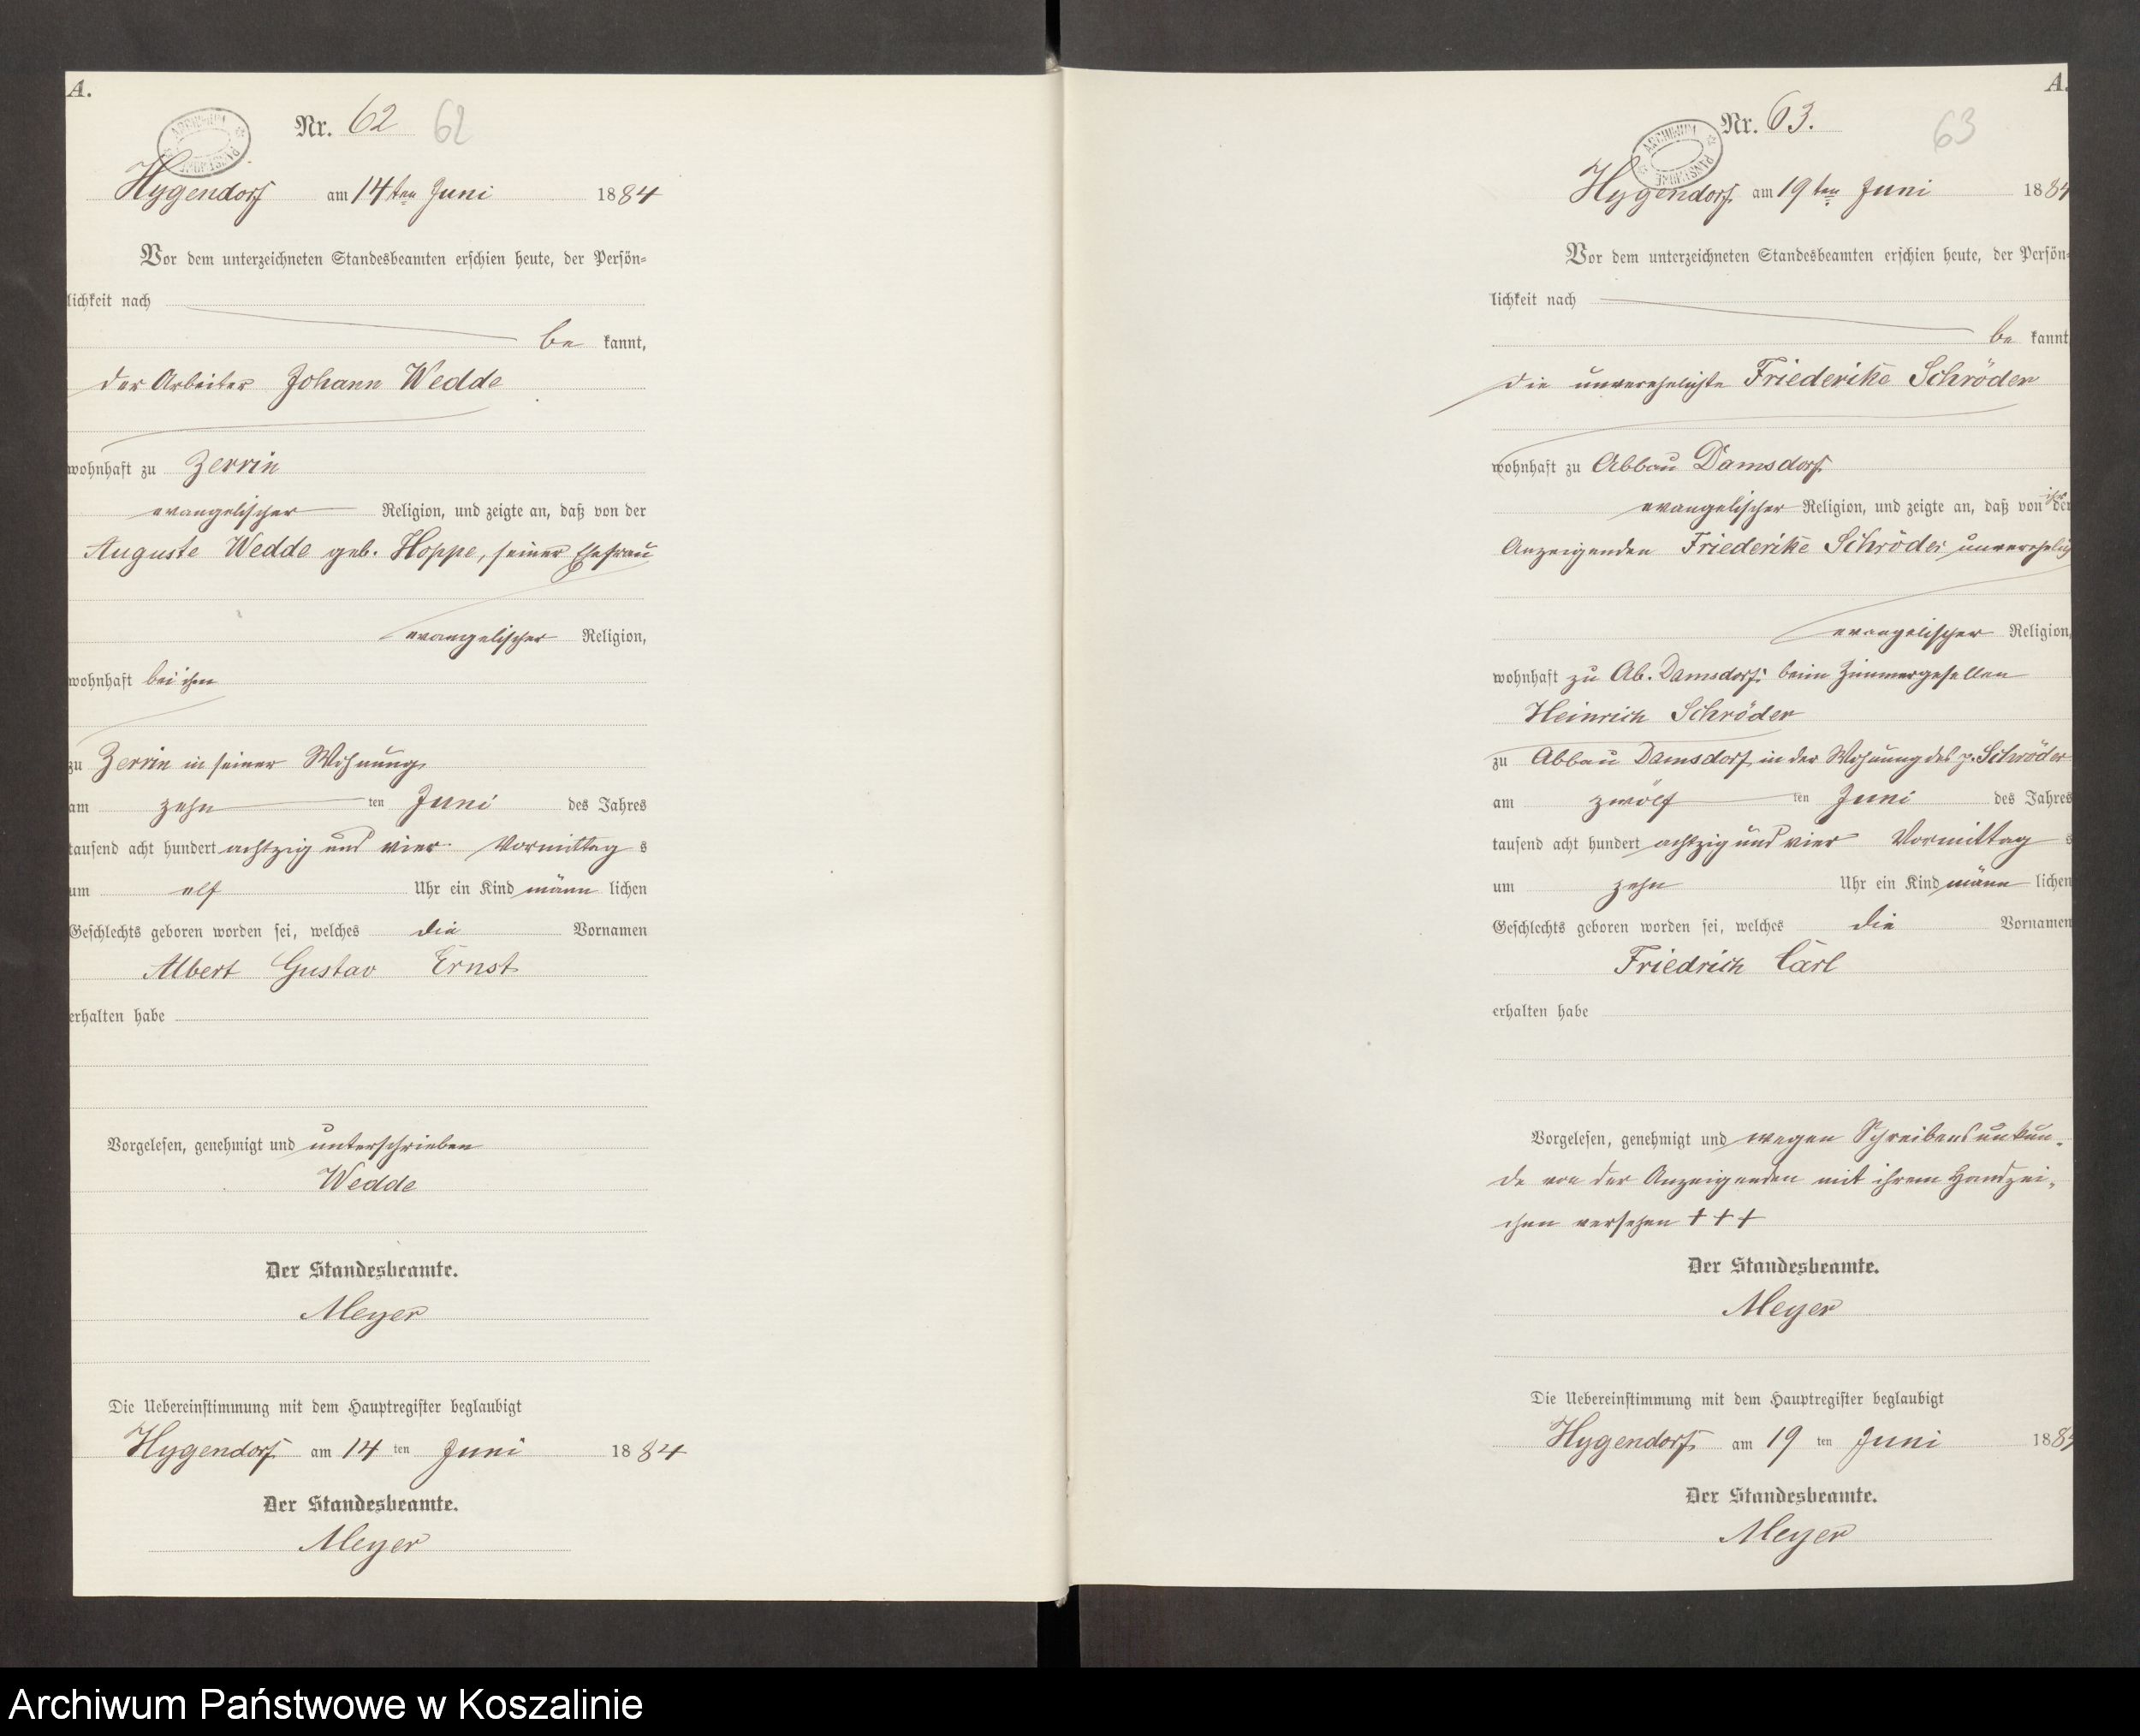 A.
Nr. 62 62
ARCHIWUM PAŃSTWOWE
Hygendorf am 14ten Juni 1884
Vor dem unterzeichneten Standesbeamten erschien heute, der Persön-
lichkeit nach
be kannt,
der Arbeiter Johann Wedde
wohnhaft zu Zerrin
evangelischer Religion, und zeigte an, daß von der
Auguste Wedde geb. Hoppe, seiner Ehefrau
evangelischer Religion,
wohnhaft bei ihm
zu Zerrin in seiner Wohnung
am zehn ten Juni des Jahres
tausend acht hundert achtzig und vier Vormittag s
um elf Uhr ein Kind männ lichen
Geschlechts geboren worden sei, welches die Vornamen
Albert Gustav Ernst
erhalten habe
Vorgelesen, genehmigt und unterschrieben
Wedde
Der Standesbeamte.
Meyer
Die Uebereinstimmung mit dem Hauptregister beglaubigt
Hygendorf am 14 ten Juni 1884
Der Standesbeamte.
Meyer
A.
Nr. 63. 63
ARCHIWUM PAŃSTWOWE
Hygendorf am 19ten Juni 1884
Vor dem unterzeichneten Standesbeamten erschien heute, der Persön-
lichkeit nach
be kannt
die unverehelichte Friederike Schröder
wohnhaft zu Abbau Damsdorf
evangelischer Religion, und zeigte an, daß von der
Anzeigenden Friederike Schröder unverehelich
evangelischer Religion,
wohnhaft zu Ab. Damsdorf beim Zimmergesellen
Heinrich Schröder
zu Abbau Damsdorf in der Wohnung des p. Schröder
am zwölf ten Juni des Jahres
tausend acht hundert achtzig und vier Vormittag s
um zehn Uhr ein Kind männ lichen
Geschlechts geboren worden sei, welches die Vornamen
Friedrich Carl
erhalten habe
Vorgelesen, genehmigt und wegen Schreibensunkun-
de von der Anzeigenden mit ihrem Handzei-
chen versehen + + +
Der Standesbeamte.
Meyer
Die Uebereinstimmung mit dem Hauptregister beglaubigt
Hygendorf am 19 ten Juni 1884
Der Standesbeamte.
Meyer
Archiwum Państwowe w Koszalinie